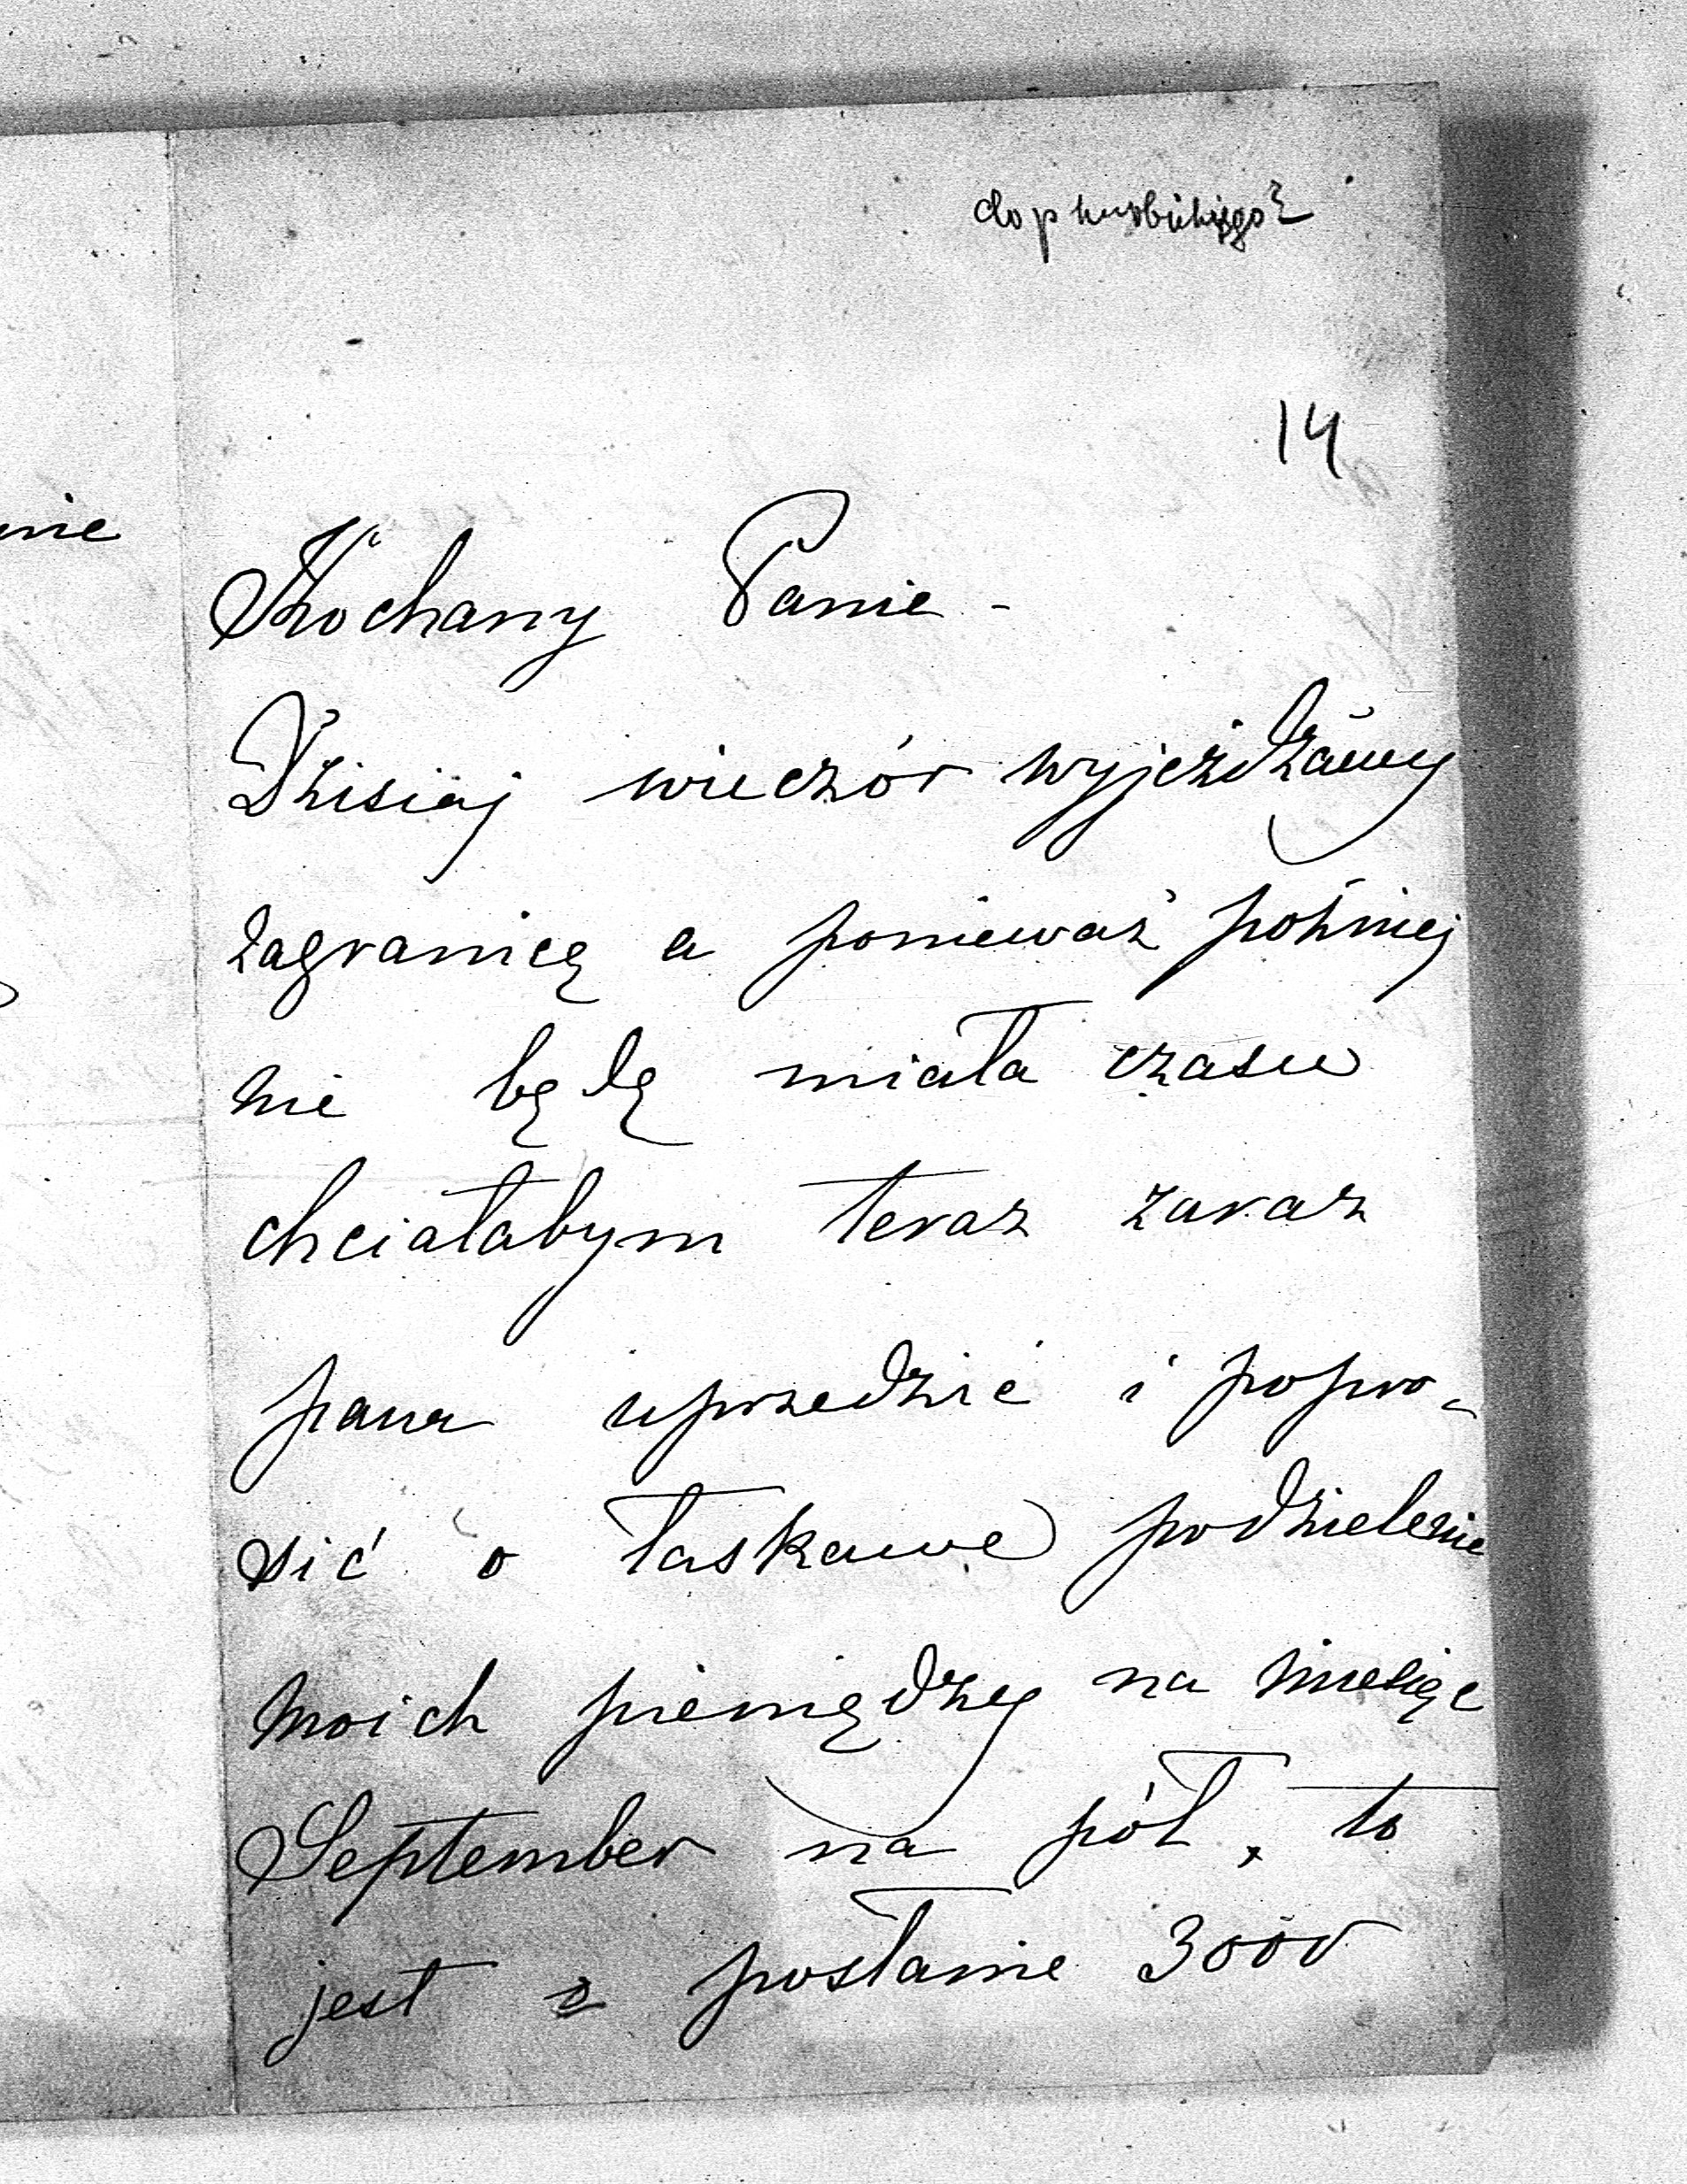 do p
14
nie
Kochany Panie -
Dzisiaj wieczór wyjeżdżamy
zagranicę a ponieważ poźniej
nie będę miała czasu
chciałabym teraz zaraz
pana uprzedzić i popro-
sić o łaskawe podzielenie
moich pieniędzy na miesiąc
September na pół, to
jest o posłanie 3000